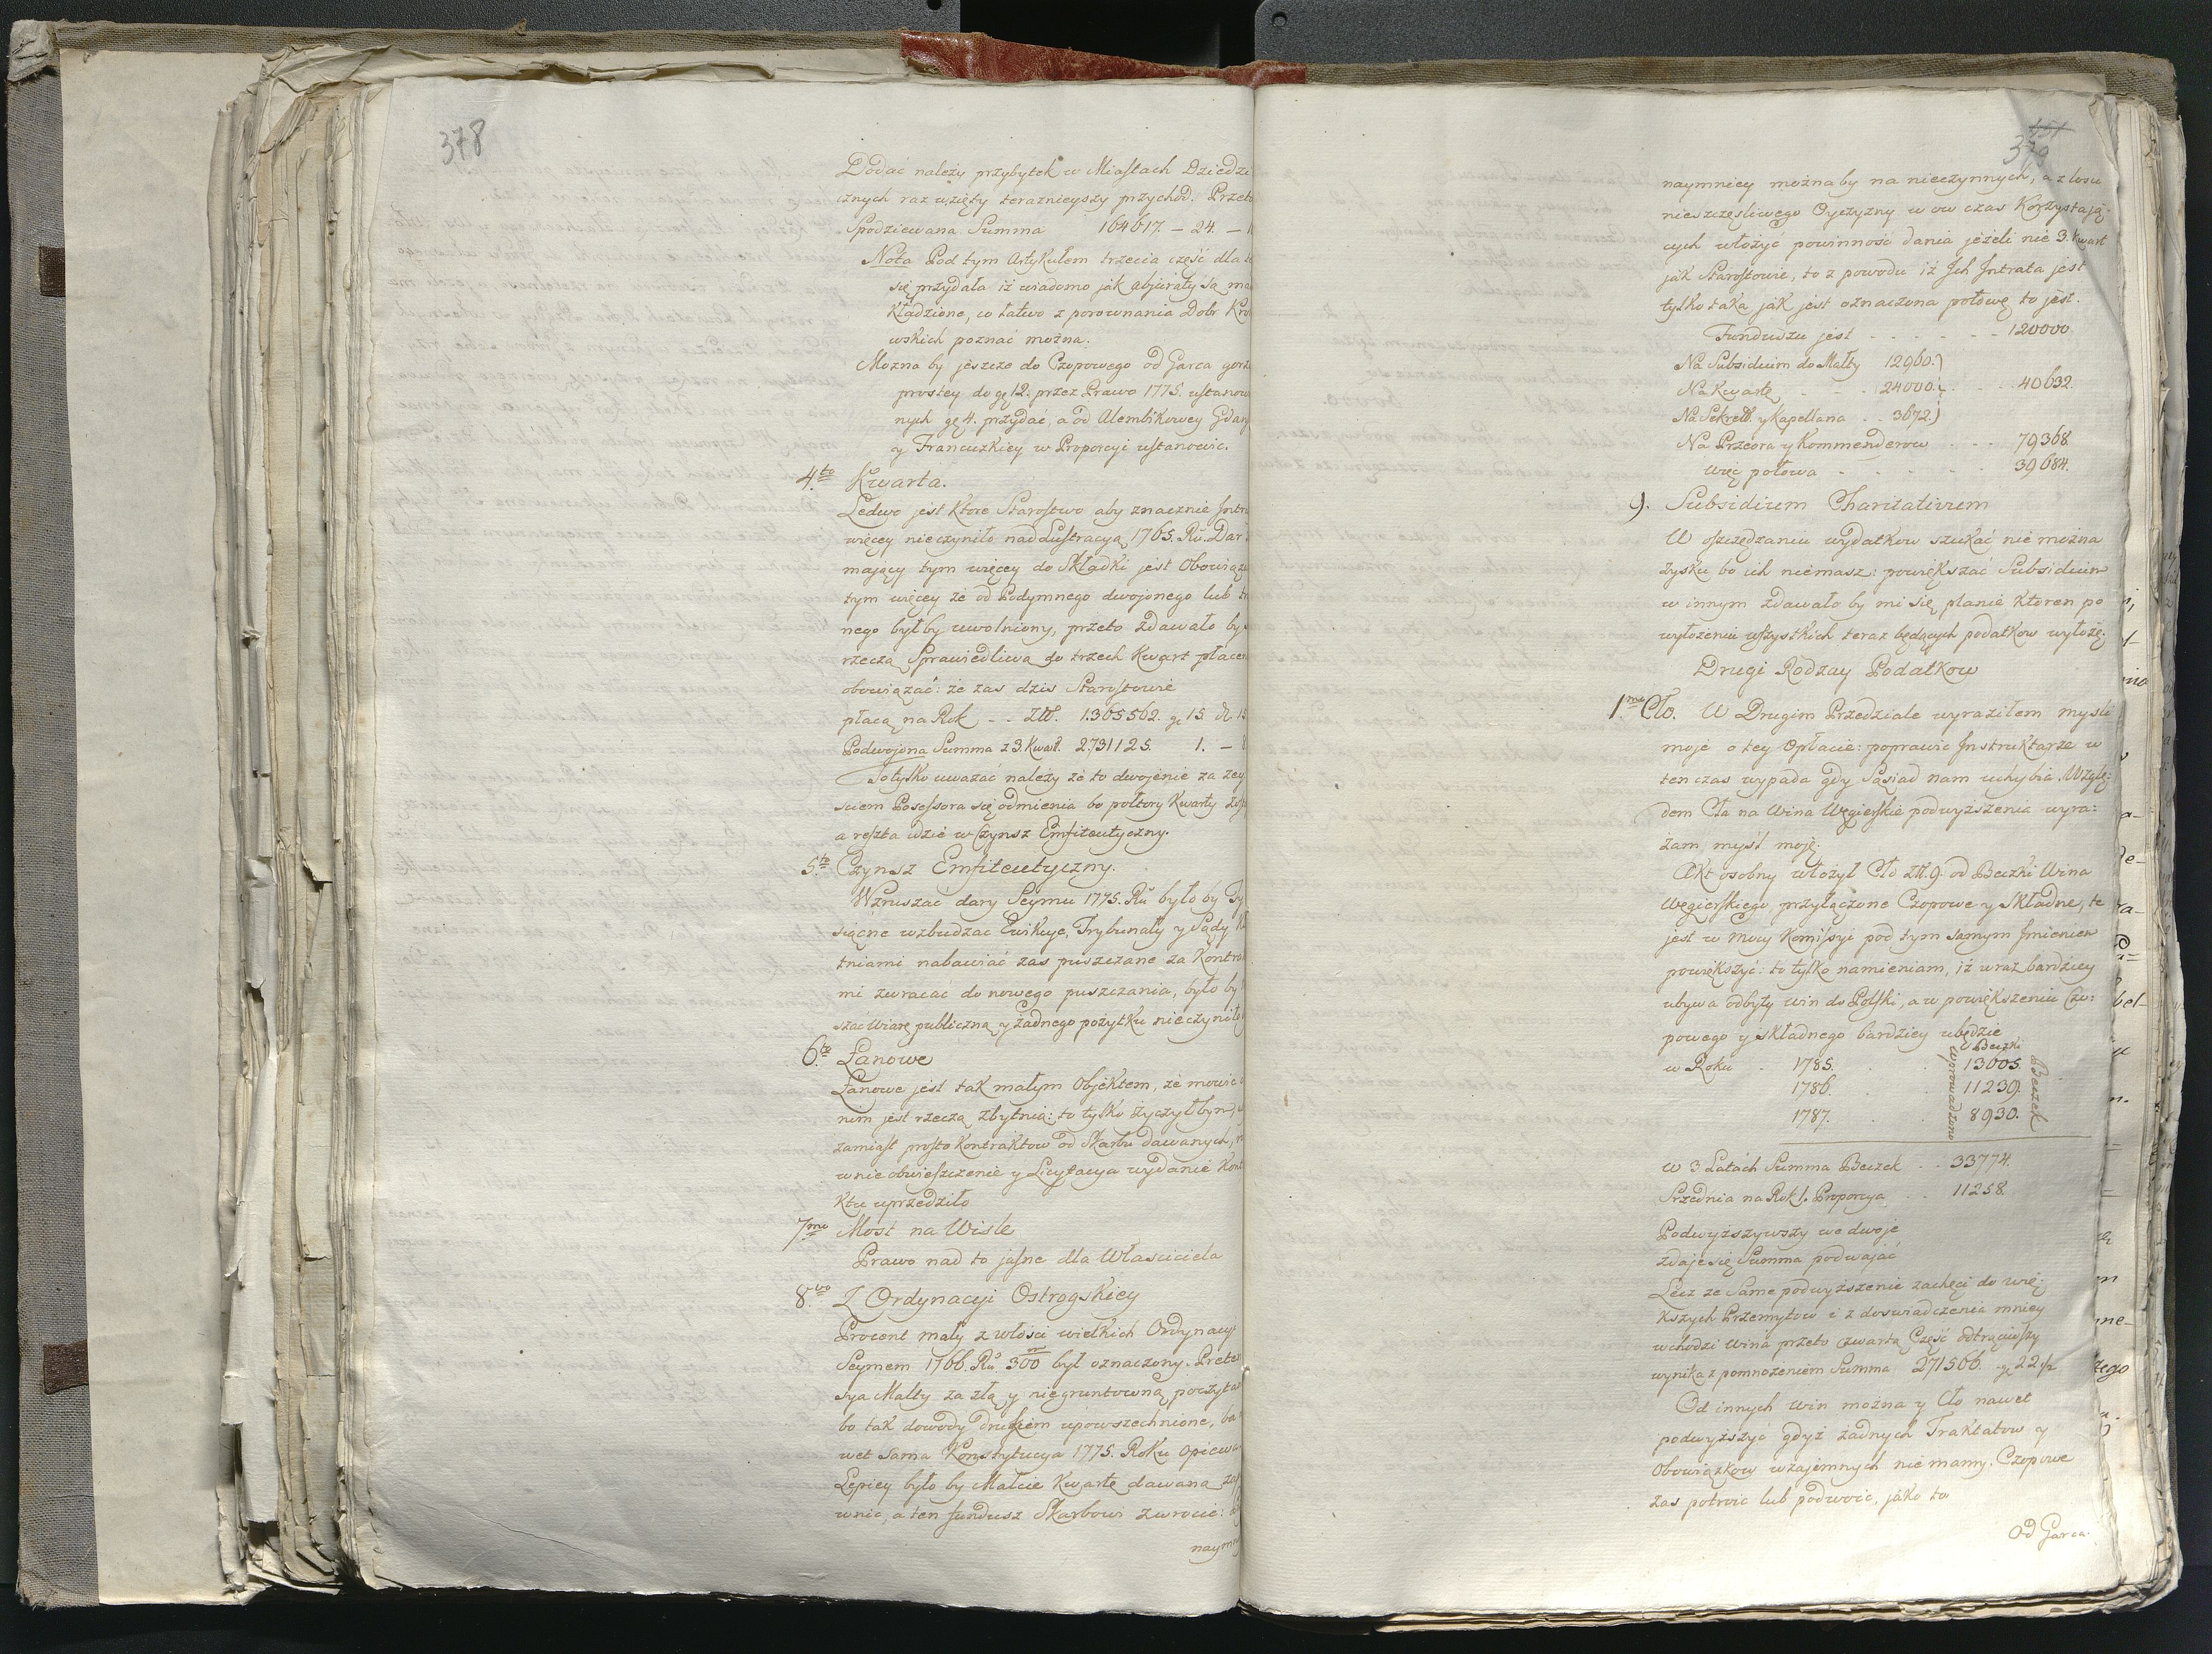 378
Dodać należy przybytek w Miastach Dziedzi
cznych raz wzięty teraznieyszy przychod. Przeto
Spodziewana Summa 164617. – 24. – 1
Nota Pod tym Artykułem trzecia część dla
się przydała iż wiadomo jak abjuraty są
kładzione, co łatwo z porownania Dobr Kro
wskich poznać można.
Mozna by jeszcze do Czopowego od Garca gorz
prostey do gr 12. przez Prawo 1775. ustanow
nych gr 4. przydać, a od Alembikowey Gdań
y Francuzkiey w Proporcyi ustanowic.
4.to Kwarta.
Ledwo jest ktore Starostwo aby znacznie Intra
więcey nieczyniło nad Lustracyą 1765. Ru. Dar
mający tym więcey do Składki jest Obowiąza
tym więcey że od Podymnego dwojonego lub
nego był by uwolniony, przeto zdawało by
rzeczą Sprawiedliwą do trzech Kwart płacen
obowiązać: że zas dzis Starostowie
płacą na Rok – – Złł. 1.365562. gr 15. d. 15
Podwojona Summa z 3. Kwart. 2.731125. 1. – 8
To tylko uważać należy że to dwojenie za zey
sciem Possessora się odmienia bo połtory Kwarty
a reszta idzie w Czynsz Emfiteutyczny.
5.to Czynsz Emfiteutyczny.
Wzruszać dary Seymu 1775. Ru było by Ty
siączne wzbudzac Ewikcye, Trybunały y Sądy
tniami nabawiać zas puszczane za Kontra
mi zwracać do nowego puszczania, było by
szac Wiarę publiczną y żadnego pożytku nieczyniło
6.to Łanowe
Łanowe jest tak małym Objektem, że mowic
nim jest rzeczą zbytnią: to tylko życzył bym,
zamiast prosto Kontraktow od Skarbu dawanych,
wnie obwieszczenie y Licytacya wydanie Kont
ktu uprzedziło
7.mo Most na Wisle
Prawo nad to jasne dla Własciciela
8.vo Z Ordynacyi Ostrogskiey
Procent mały z włości wielkich Ordynacyi
Seymem 1766. Ru 300 m był oznaczony. Preten
sya Malty za złą y niegruntowną poczytać
bo tak dowody drukiem upowszechnione, ba
wet sama Konstytucya 1775. Roku opiewa
Lepiey było by Malcie Kwartę dawaną zap
wnic, a ten fundusz Skarbowi zwrocic:
naymn
451
379
naymniey można by na nieczynnych, a z losu
nieszczęśliwego Oyczyzny w ow czas Korzystają-
cych włożyć powinność dania jeżeli nie 3. Kwart
jak Starostowie, to z powodu iż Jch Jntrata jest
tylko taka jak jest oznaczona połowę to jest.
Funduszu jest – – – – – 120000.
Na Subsidium do Malty 12960.
Na Kwartę – – – 24000. – – 40632.
Na Sekrett. y Kapellana – – 3672.
Na Przeora y Kommenderow – – – 79368.
więc połowa – – – – – 39684.
9. Subsidium Charitativum
W oszczędzaniu wydatkow szukać nie można
zysku bo ich niemasz: powiększać Subsidium
w innym zdawało by mi się planie ktoren po
wyłożeniu wszystkich teraz będących podatkow wyłożę.
Drugi Rodzay Podatkow
1.mo Cło. W Drugim Przedziale wyraziłem mysli
moje o tey Opłacie: poprawic Jnstruktarze w
ten czas wypada gdy Sąsiad nam uchybia. Wzglę-
dem Cła na Wina Węgierskie podwyższenia wyra-
żam mysl moję.
Akt osobny włożył Cło Złł. 9. od Beczki Wina
Węgierskiego przyłączone Czopowe y Składne, te
jest w mocy Komissyi pod tym samym Jmieniem
powiększyć: to tylko namieniam, iż wraz bardziey
ubywa odbyty win do Polski, a w powiększeniu Czo-
powego y składnego bardziey ubędzie
Beczki
w Roku . 1785. . . 13605.
1786. . . 11239.
1787. . . 8930.
wprowadzono
Beczek
w 3 Latach Summa Beczek – – 33774.
Srzednia na Rok 1. Proporcya – – 11258.
Podwyższywszy we dwoje
zdaje się Summa podwajać
Lecz ze same podwyższenie zachęci do wię-
kszych Przemytow i z doswiadczenia mniey
wchodzi wina przeto czwartą Część odtrąciwszy
wynika z pomnożeniem Summa 271566. gr 22 1/2
Od innych win można y Cło nawet
podwyższyć gdyż żadnych Traktatow y
Obowiązkow wzajemnych nie mamy. Czopowe
zas potroic lub podwoic, jako to
Od Garca.